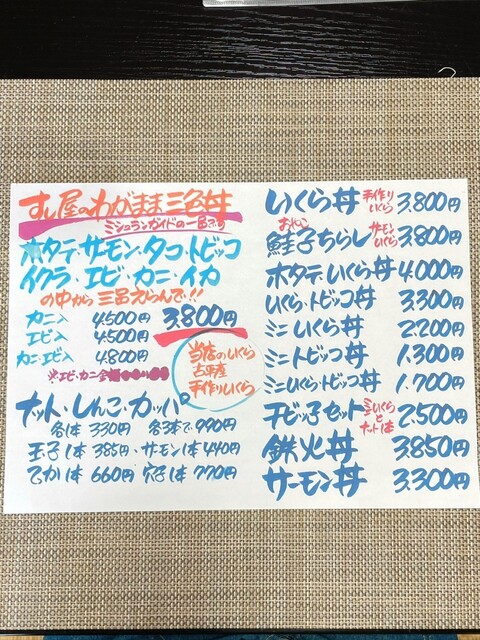 すし屋のわがまま三色丼
ミシュランガイドの一品です
ホタテ・サーモン・タコ・トビッコ
イクラ・エビ・カニ・イカ
の中から三品えらんで!!
3,800円
カニ入 4,500円
エビ入 4,500円
カニ・エビ入 4,800円
※エビ・カニ
当店のいくら
古平産
手作りいくら
ナット・しんこ・カッパ
各1本 330円 各3本で990円
玉子1本 385円・サーモン1本 440円
とびっ1本 660円 穴子1本 770円
いくら丼 手作りいくら 3,800円
おやこ
鮭子ちらし サーモンいくら 3,800円
ホタテ・いくら丼 4,000円
いくら・トビッコ丼 3,300円
ミニいくら丼 2,200円
ミニトビッコ丼 1,300円
ミニいくら・トビッコ丼 1,700円
チビッ子セット ミニいくらとナット1本 2,500円
鉄火丼 3,850円
サーモン丼 3,300円